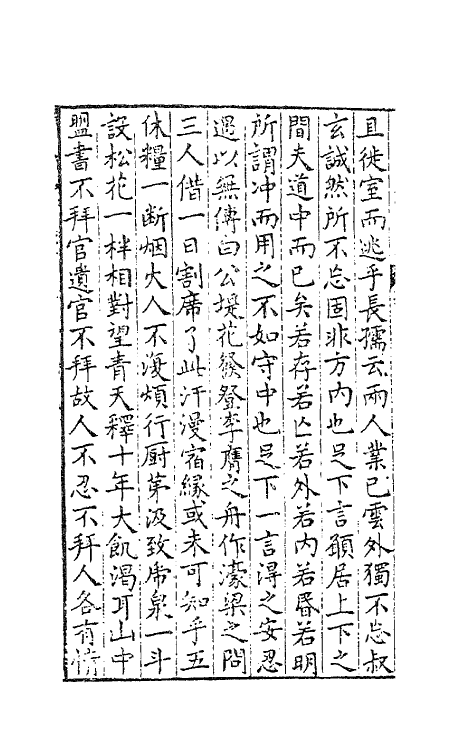 且徙室而逃乎長孺云兩人業已雲外獨不忘叔
玄誠然所不忘固非方內也足下言願居上下之
間夫道中而已矣若存若亡若外若內若昏若明
所謂冲而用之不如守中也足下一言得之安忍
遏以無傳白公堤花發登李膺之舟作濠梁之問
三人偕一日割席了此汗漫宿緣或未可知乎五
休糧一斷烟火人不復煩行厨茅汲致乕泉一斗
設松花一柈相對望青天釋十年大飢渴耳山中
盟書不拜官遺官不拜故人不忍不拜人各有情